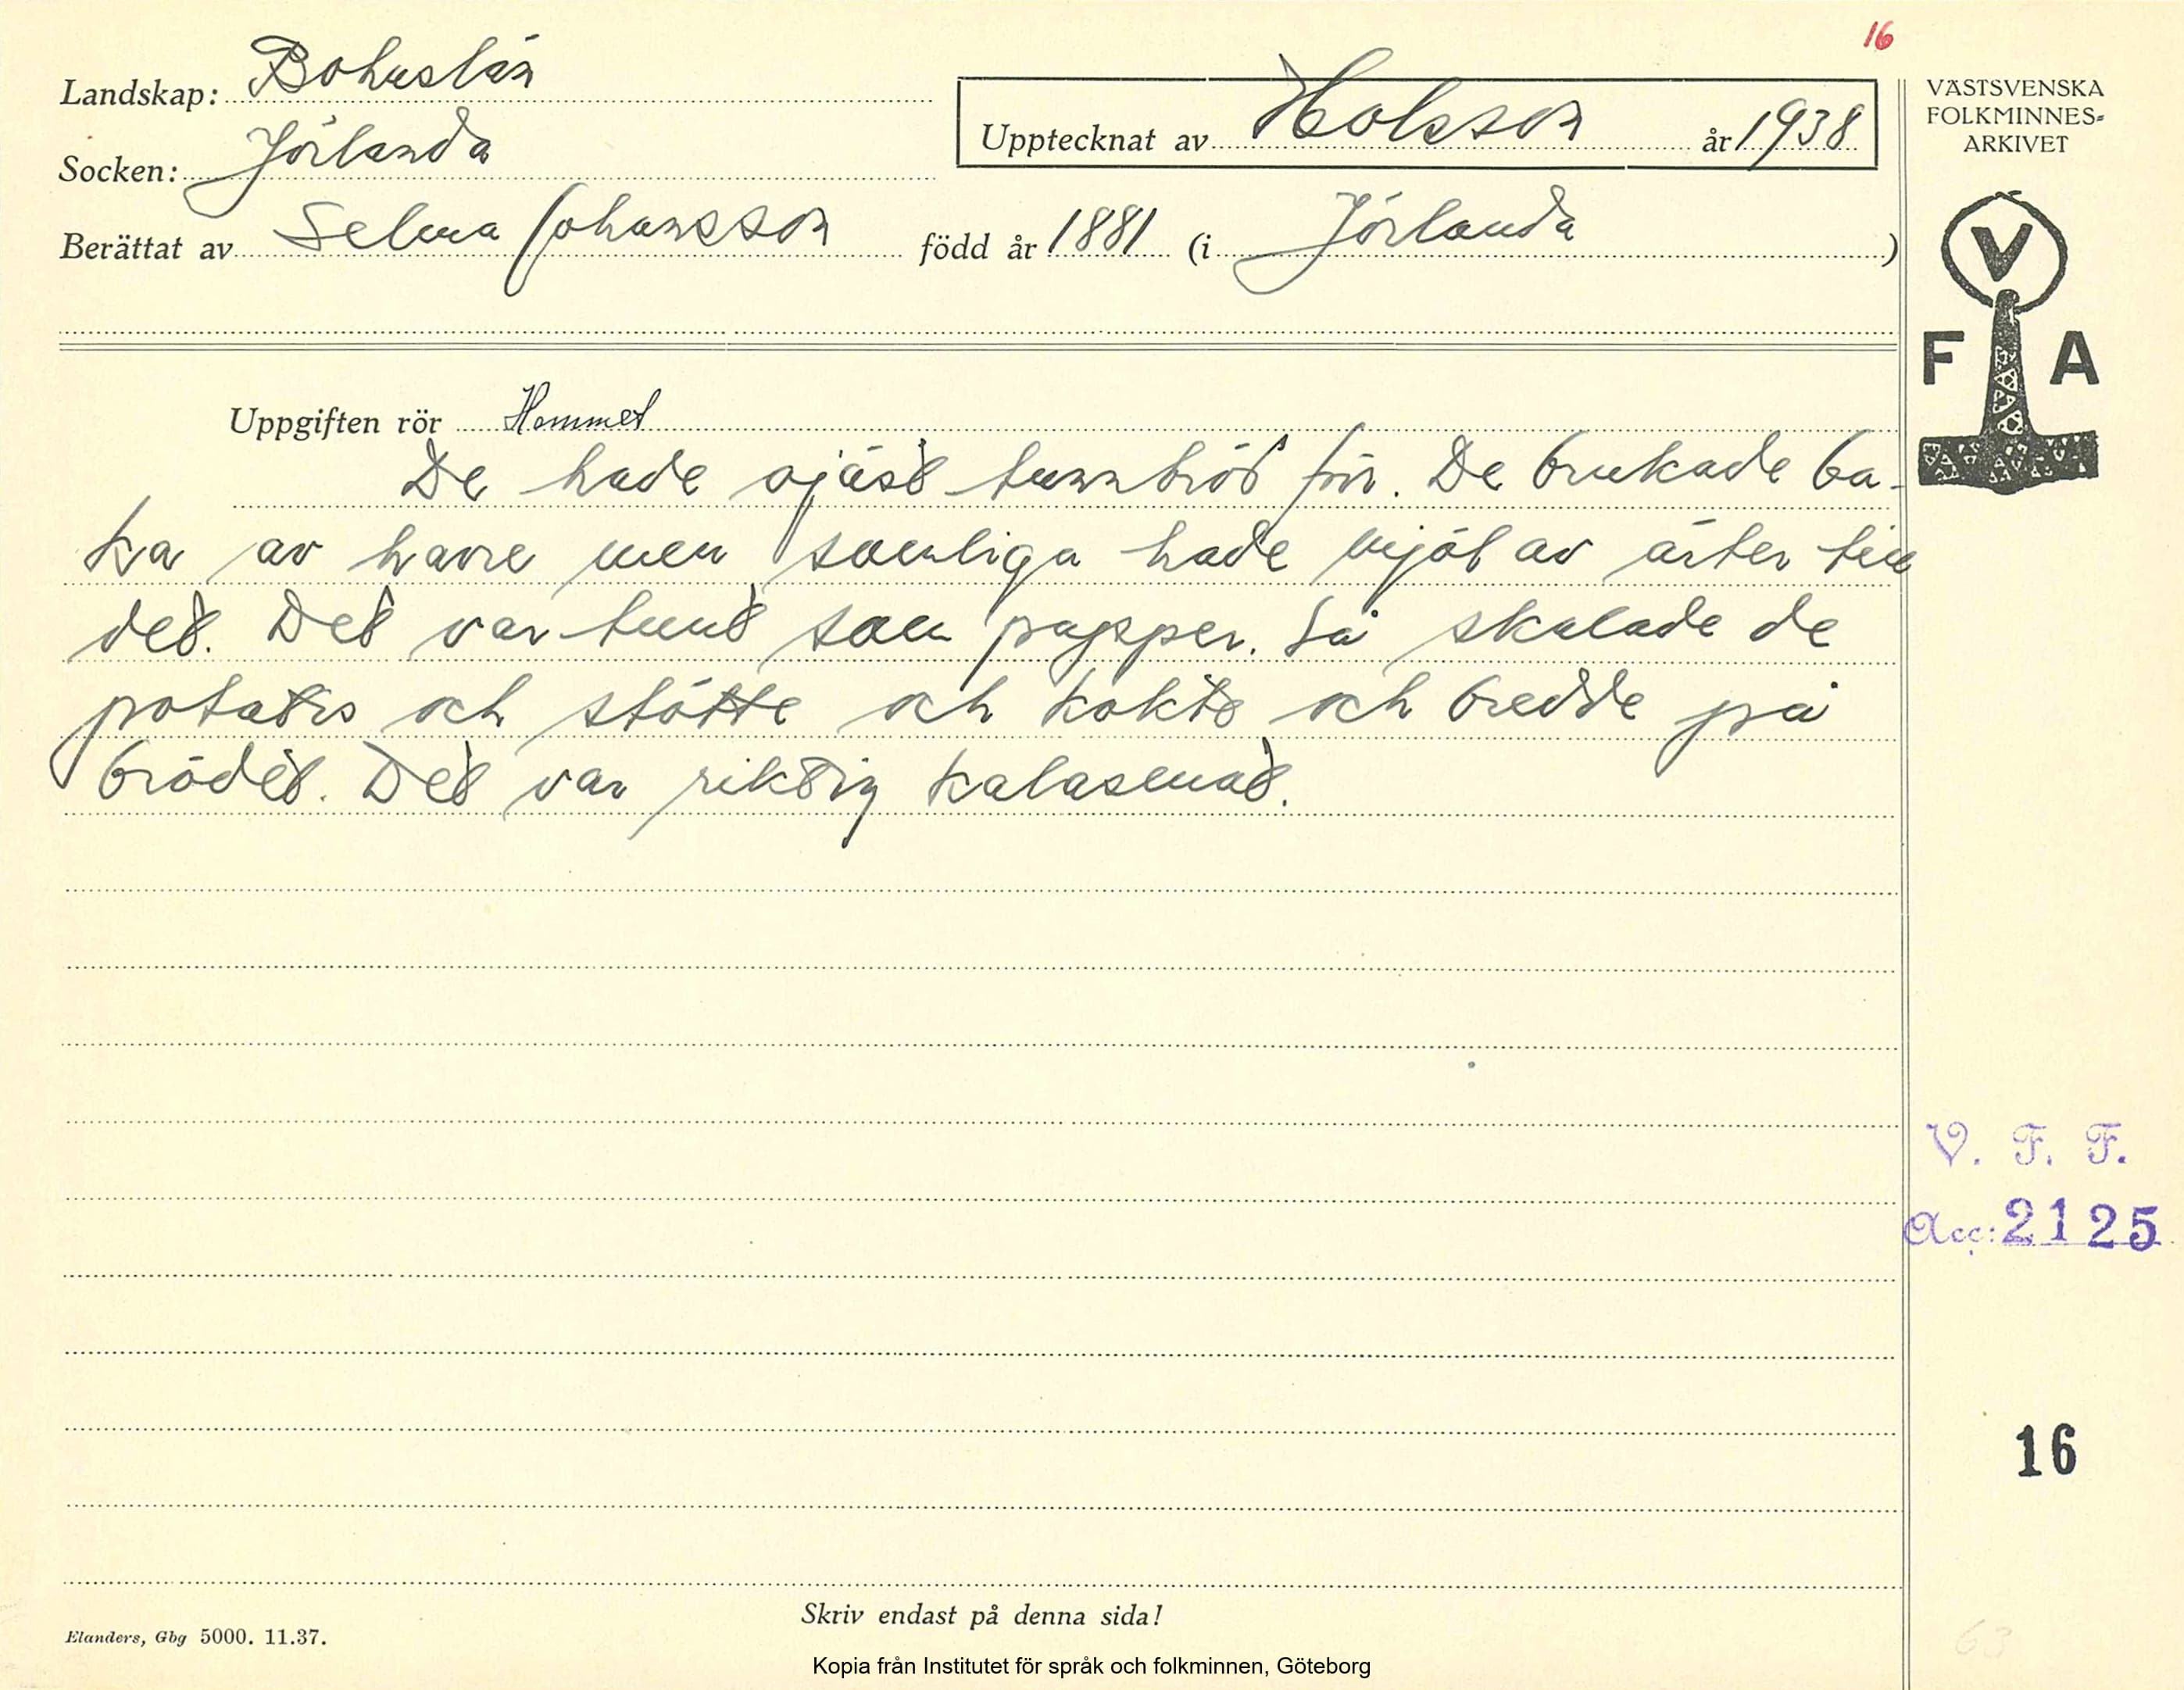 16
Landskap: Bohuslän
Socken: Jörlanda
Berättat av Selma Johansson född år 1881 (i Jörlanda)
Upptecknat av Holsson år 1938
VÄSTSVENSKA
FOLKMINNES-
ARKIVET
V
F A
Uppgiften rör Hemmet
De hade ojäst tunnbröd förr. De brukade ba-
ka av havre men somliga hade mjöl av ärter till
det. Det var tunt som papper. Så skalade de
potatis och stötte och kokte och bredde på
brödet. Det var riktig kalasmat.
V. F. F.
Acc: 2125
16
Skriv endast på denna sida!
Elanders, Gbg 5000. 11.37.
63
Kopia från Institutet för språk och folkminnen, Göteborg